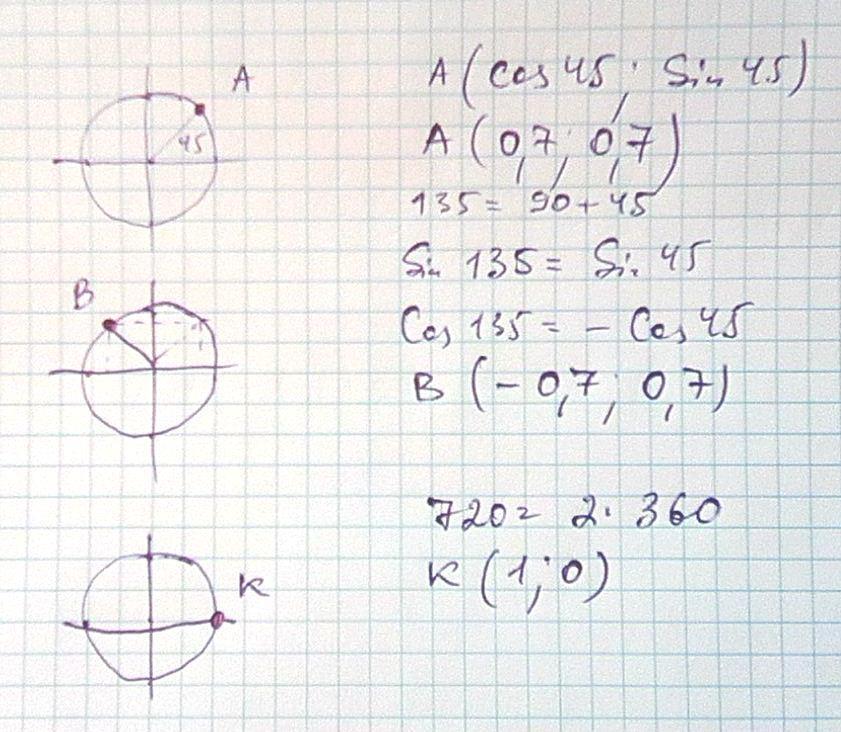 A
45
A (cos 45; Sin 45)
A (0,7; 0,7)
135 = 90 + 45
Sin 135 = Sin 45
B
Cos 135 = - Cos 45
B (- 0,7; 0,7)
720 = 2 · 360
K
K (1; 0)